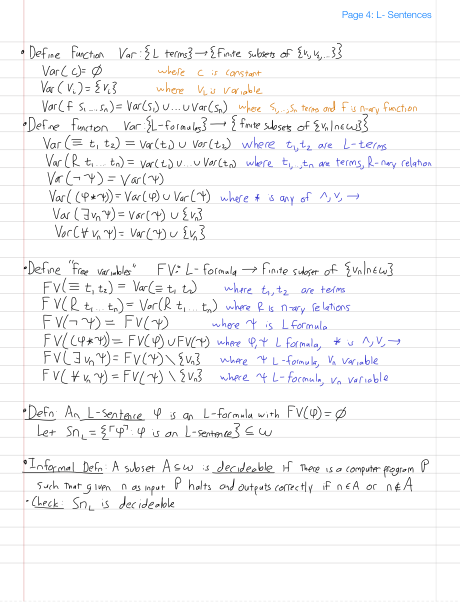 Page 4: L- Sentences
• Define function Var: {L terms} → {Finite subsets of {v₀, v₁, ...}}
Var(c) = ∅ where c is constant
Var(vᵢ) = {vᵢ} where vᵢ is variable
Var(f s₁...sₙ) = Var(s₁) ∪ ... ∪ Var(sₙ) where s₁,...,sₙ terms and F is n-ary function
• Define function Var: {L-formulas} → {finite subsets of {vₙ|n∈ω}}
Var(≡ t₁ t₂) = Var(t₁) ∪ Var(t₂) where t₁, t₂ are L-terms
Var(R t₁ ... tₙ) = Var(t₁) ∪ ... ∪ Var(tₙ) where t₁,...,tₙ are terms, R n-ary relation
Var(¬ψ) = Var(ψ)
Var((φ*ψ)) = Var(φ) ∪ Var(ψ) where * is any of ∧, ∨, →
Var(∃vₙψ) = Var(ψ) ∪ {vₙ}
Var(∀vₙψ) = Var(ψ) ∪ {vₙ}
• Define "free variables" FV: L-formula → Finite subset of {vₙ|n∈ω}
FV(≡ t₁ t₂) = Var(≡ t₁ t₂) where t₁, t₂ are terms
FV(R t₁ ... tₙ) = Var(R t₁ ... tₙ) where R is n-ary relations
FV(¬ψ) = FV(ψ) where ψ is L formula
FV((φ*ψ)) = FV(φ) ∪ FV(ψ) where φ, ψ L formula, * is ∧, ∨, →
FV(∃vₙψ) = FV(ψ) \ {vₙ} where ψ L-formula, vₙ variable
FV(∀vₙψ) = FV(ψ) \ {vₙ} where ψ L-formula, vₙ variable
• Defn: An L-sentence φ is an L-formula with FV(φ) = ∅
Let Sn_L = {⌜φ⌝ : φ is an L-sentence} ⊆ ω
• Informal Defn: A subset A ⊆ ω is decideable if there is a computer program P
such that given n as input P halts and outputs correctly if n ∈ A or n ∉ A
• Check: Sn_L is decideable